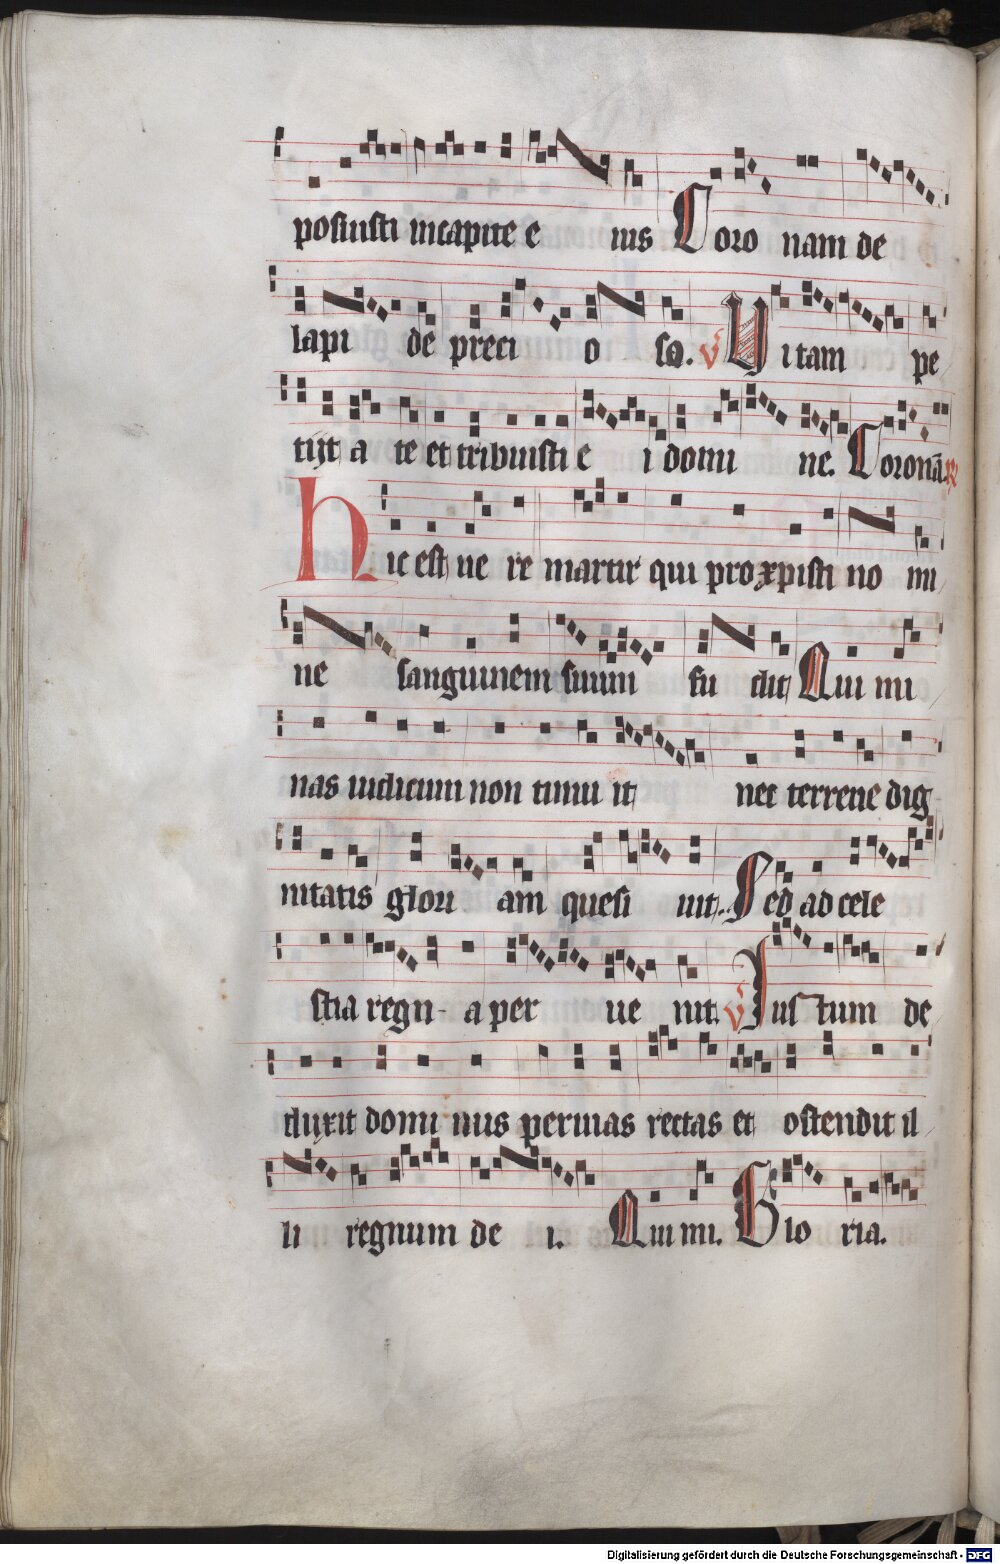 posuisti in capite e ius Coro nam de
lapi de preci o so. V Vitam pe
tijt a te et tribuisti e i domi ne. Coronā. R
Hic est ve re martir qui pro xpisti no mi
ne sanguinem suum fu dit Qui mi
nas iudicum non timu it nec terrene dig
nitatis glori am quesi uit. Sed ad cele
stia regn- a per ue nit. V Iustum de
duxit domi nus per uias rectas et ostendit il
li regnum de i. Qui mi. Glo ria.
Digitalisierung gefördert durch die Deutsche Forschungsgemeinschaft - DFG